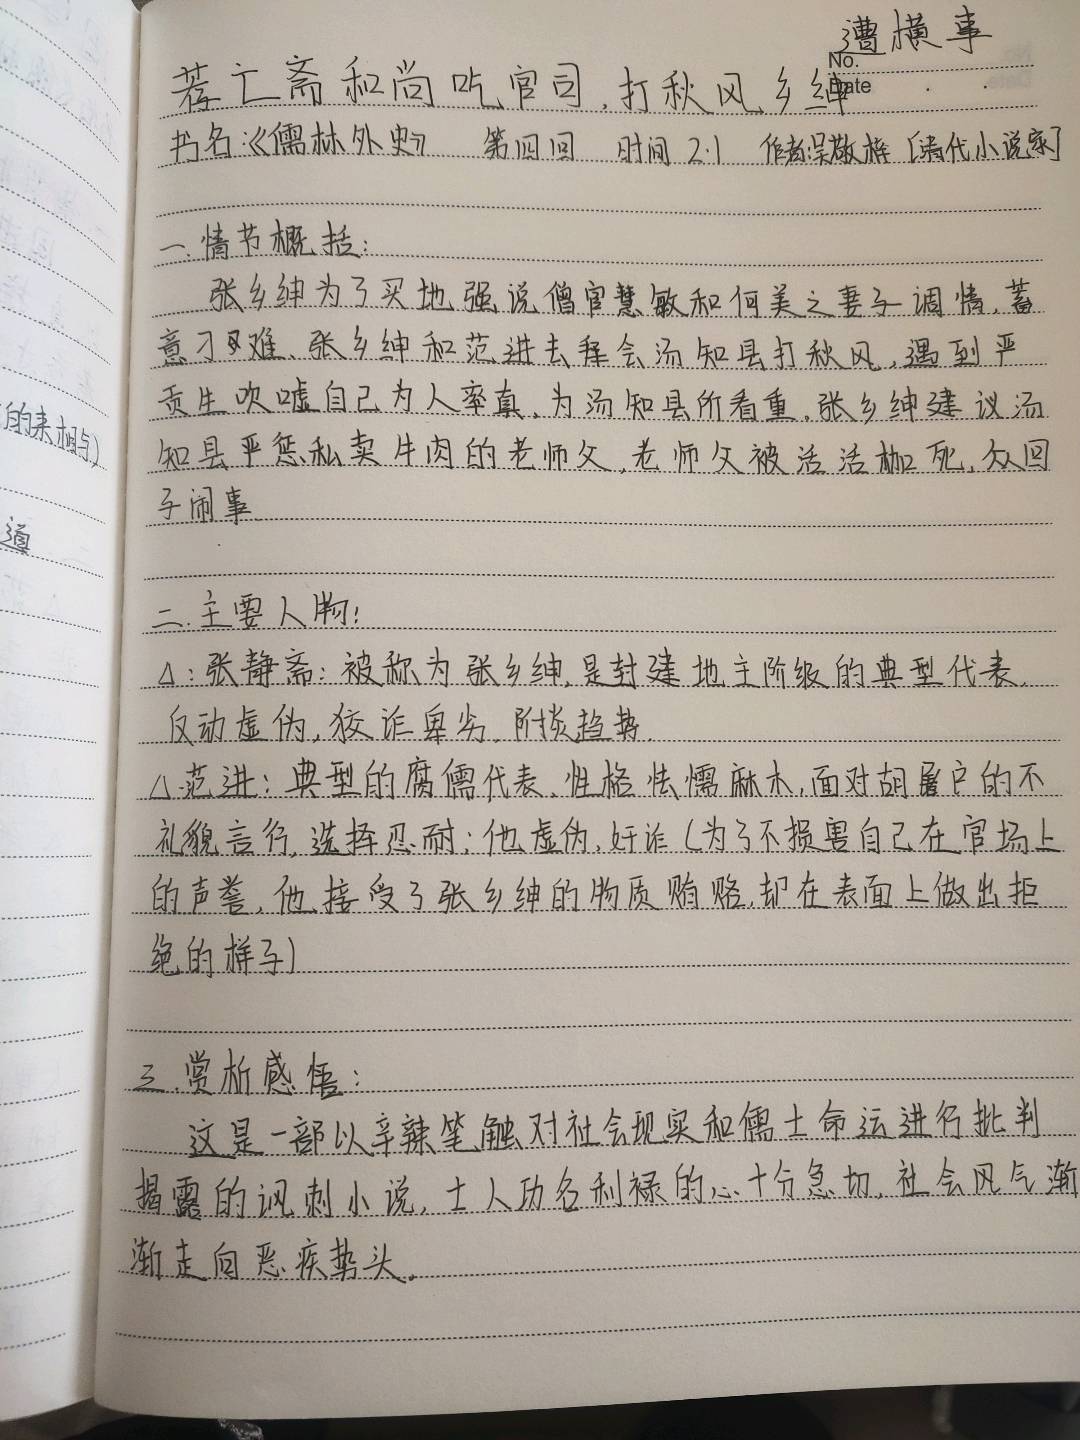 遭横事
No.
Date
荐亡斋和尚吃官司,打秋风乡绅
书名:《儒林外史》 第四回 时间 2.1 作者:吴敬梓 [清代小说家]
一.情节概括:
张乡绅为了买地,强说僧官慧敏和何美之妻子调情,蓄
意刁难、张乡绅和范进去拜会汤知县打秋风,遇到严
贡生吹嘘自己为人率真,为汤知县所看重,张乡绅建议汤
知县严惩私卖牛肉的老师父,老师父被活活枷死,众回
子闹事.
二.主要人物:
△:张静斋:被称为张乡绅,是封建地主阶级的典型代表.
反动虚伪,狡诈卑劣.附炎趋势.
△.范进:典型的腐儒代表、性格怯懦麻木,面对胡屠户的不
礼貌言行,选择忍耐;他虚伪,奸诈(为了不损害自己在官场上
的声誉,他接受了张乡绅的物质贿赂,却在表面上做出拒
绝的样子)
三.赏析感悟:
这是一部以辛辣笔触对社会现实和儒士命运进行批判
揭露的讽刺小说,士人功名利禄的心十分急切,社会风气渐
渐走向恶疾势头.
的来相与)
道